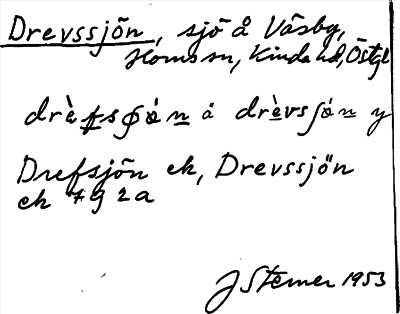 Drevssjön, sjö å Väsby,
Horns sn, Kinda hd, Östgl
drèfsjø̀n å drèvsʃø̀n y
Drefsjön ek, Drevssjön
ek 7 G 2a
J Sterner 1953